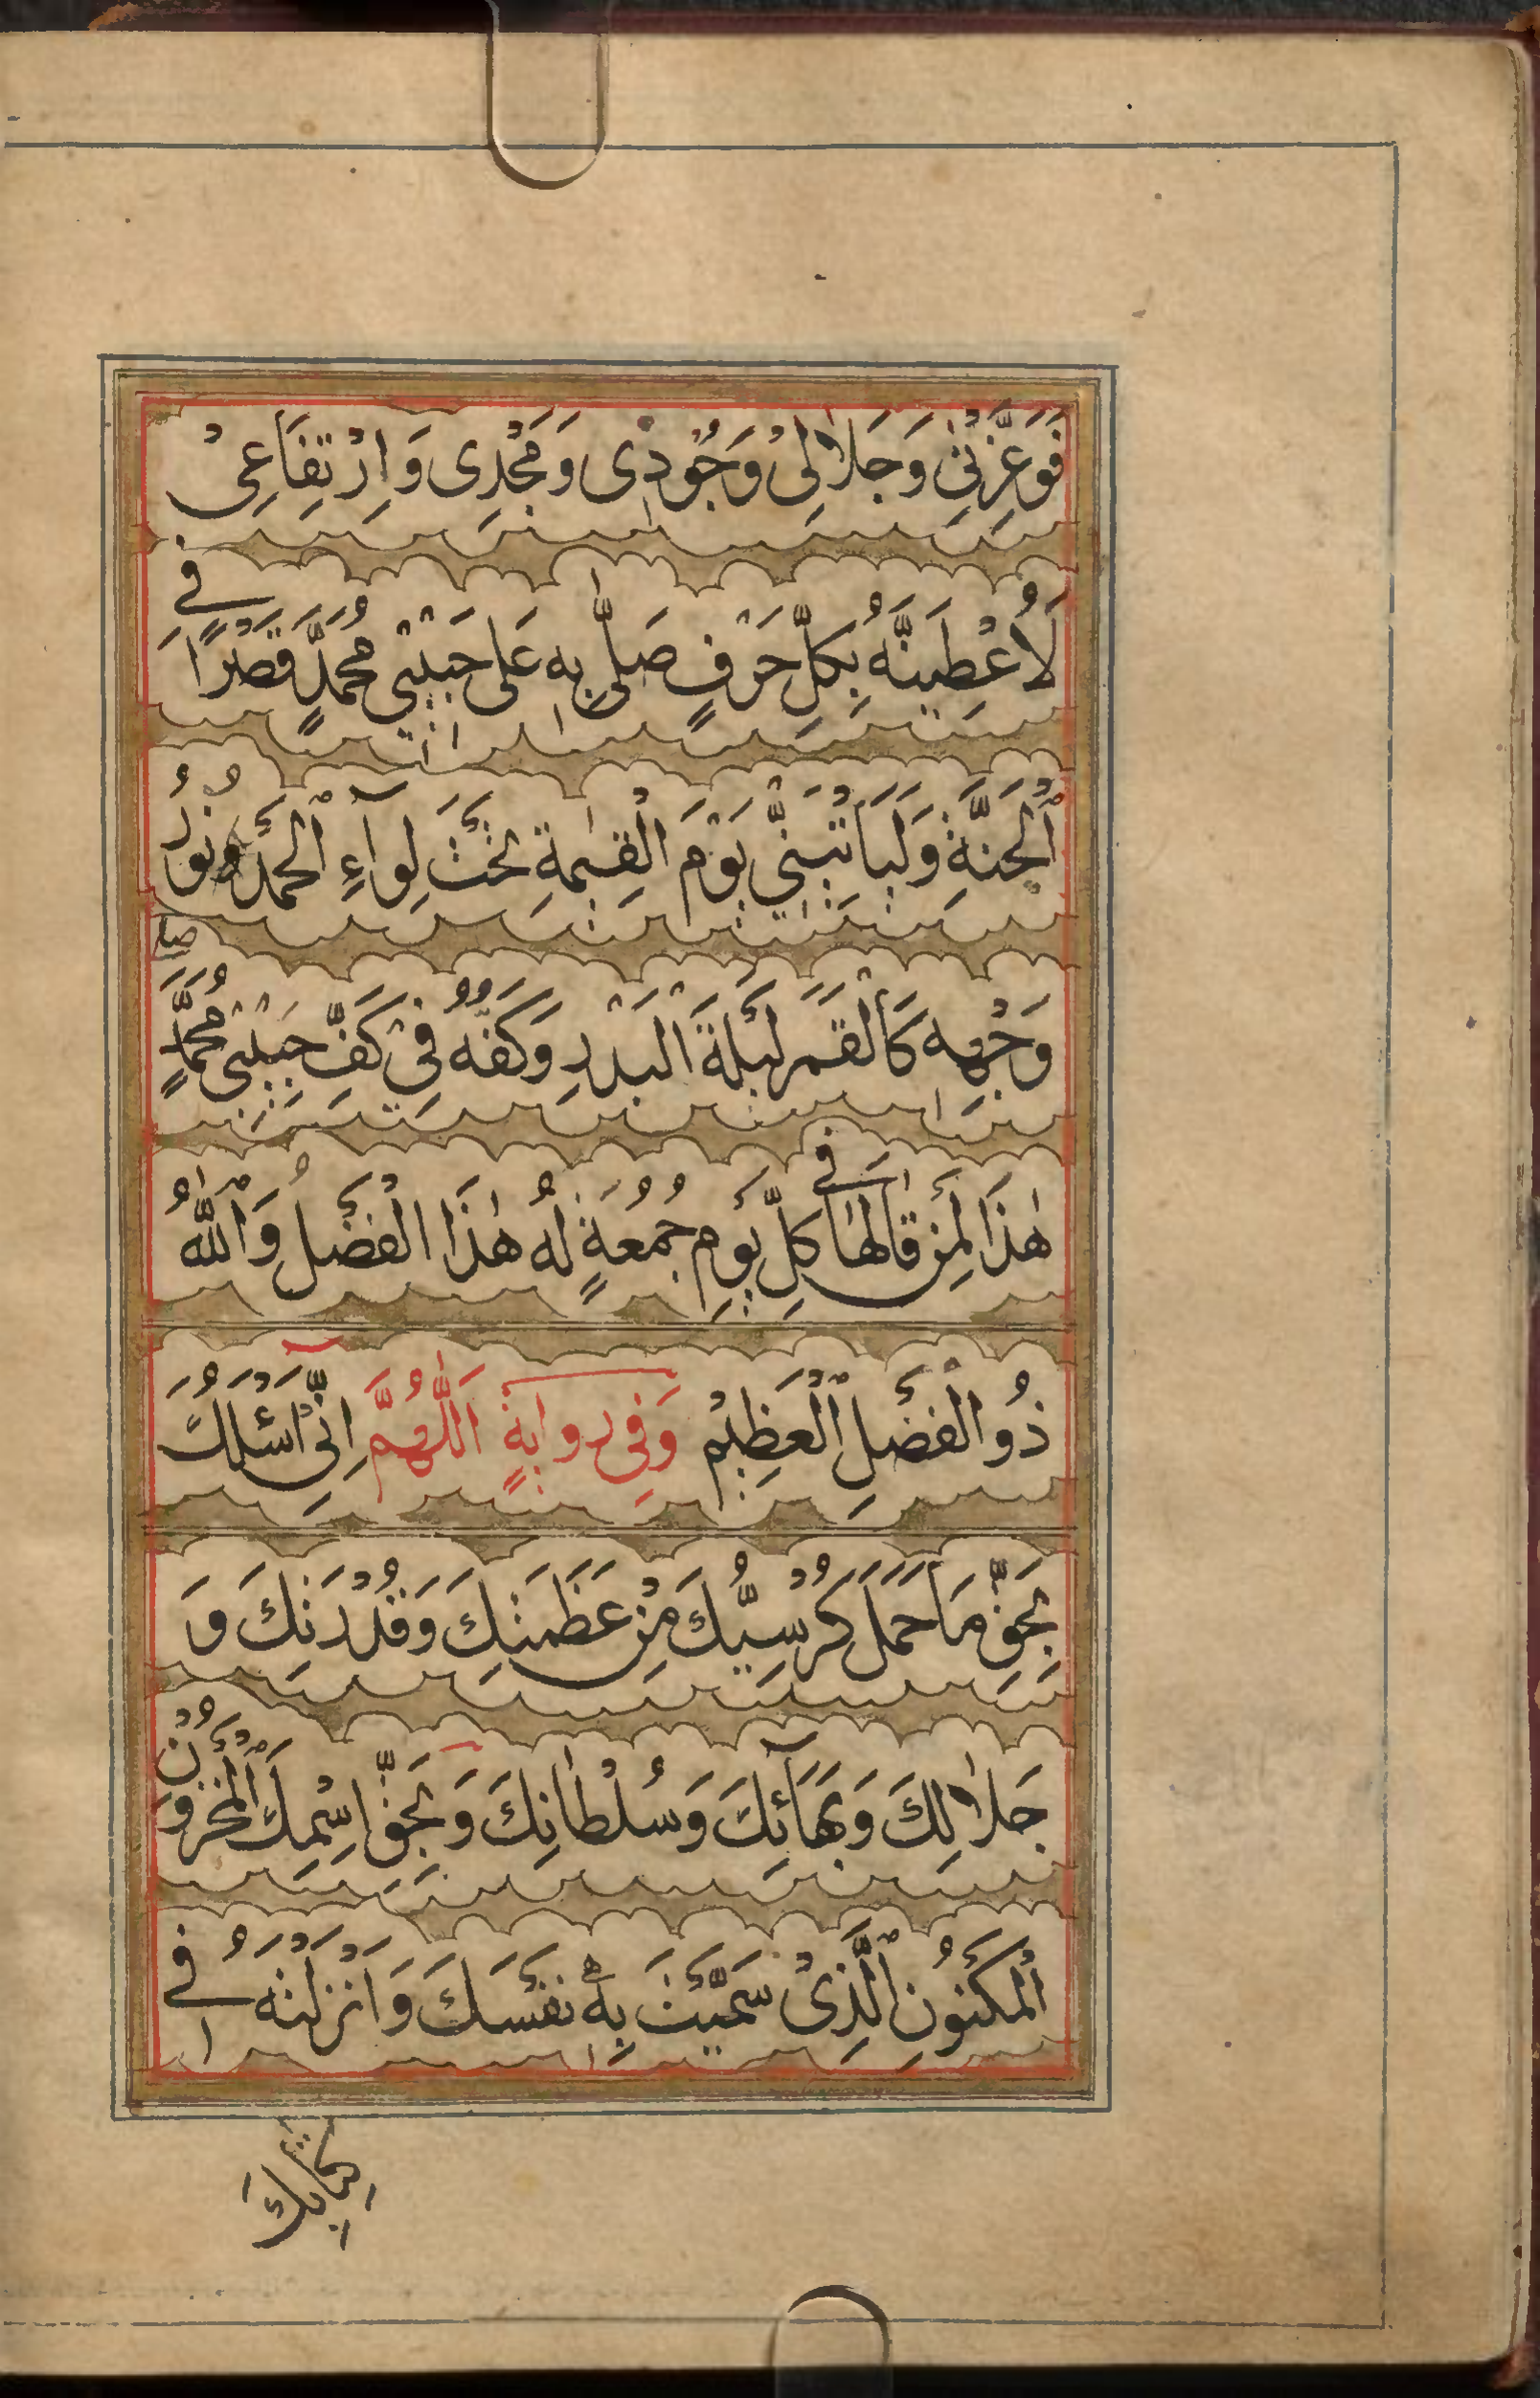 فَوَعِزَّتِيْ وَجَلَالِيْ وَجُوْدِى وَمَجْدِى وَاِرْتِفَاعِىْ
لَاُعْطِيَنَّهُ بِكُلِّ حَرْفٍ صَلَّى بِهٖ عَلٰى حَبِيْبِيْ مُحَمَّدٍ قَصْرًا فِي
اَلْجَنَّةِ وَلَيَاْتِيَنِّىْ يَوْمَ الْقِيٰمَةِ تَحْتَ لِوَآءِ الْحَمْدِ وَنُوْرُ
وَجْهِهٖ كَالْقَمَرِ لَيْلَةَ الْبَدْرِ وَكَفُّهُ فِيْ كَفِّ حَبِيْبِيْ مُحَمَّدٍ صلى
هٰذَا لِمَنْ قَالَهَا فِي كُلِّ يَوْمِ جُمُعَةٍ لَهُ هٰذَا الْفَضْلُ وَاللّٰهُ
ذُو الْفَضْلِ الْعَظِيْمِ وَفِى رِوَايَةٍ اَللّٰهُمَّ اِنِّىْٓ اَسْئَلُكَ
بِحَقِّ مَا حَمَلَ كُرْسِيُّكَ مِنْ عَظَمَتِكَ وَقُدْرَتِكَ وَ
جَلَالِكَ وَبَهَآئِكَ وَسُلْطَانِكَ وَبِحَقِّ اسْمِكَ الْمَخْزُوْنِ
الْمَكْنُوْنِ الَّذِىْ سَمَّيْتَ بِهٖ نَفْسَكَ وَاَنْزَلْتَهُ فِي
كِتَابِكَ